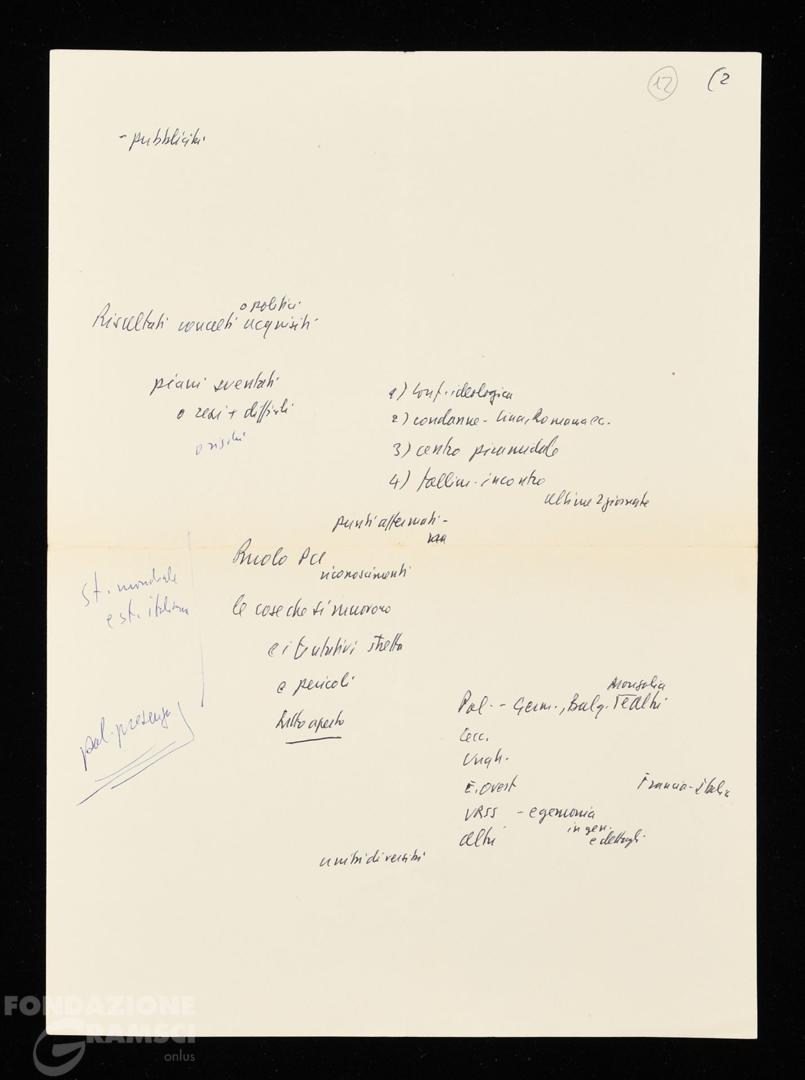 12 (2
- pubblicità
o politici
Risultati concreti acquisiti
piani sventati
o resi + difficili
o rischi
1) conf. ideologica
2) condanne - Cina, Romania ecc.
3) centro piramidale
4) fallim. incontro
ultime 2 giornate
punti affermati -
Ruolo PCI
riconoscimenti
St. mondiale
e st. italiana
le cose che si muovono
e i tentativi stretta
e pericoli
tutto aperto
pol. presenza
Mongolia
Pol. - Germ., Bulg.
Cec.
Ungh.
E. Ovest Francia - Italia
URSS - egemonia
in gen.
Altri e dettagli
unità diversità
FONDAZIONE
GRAMSCI
onlus